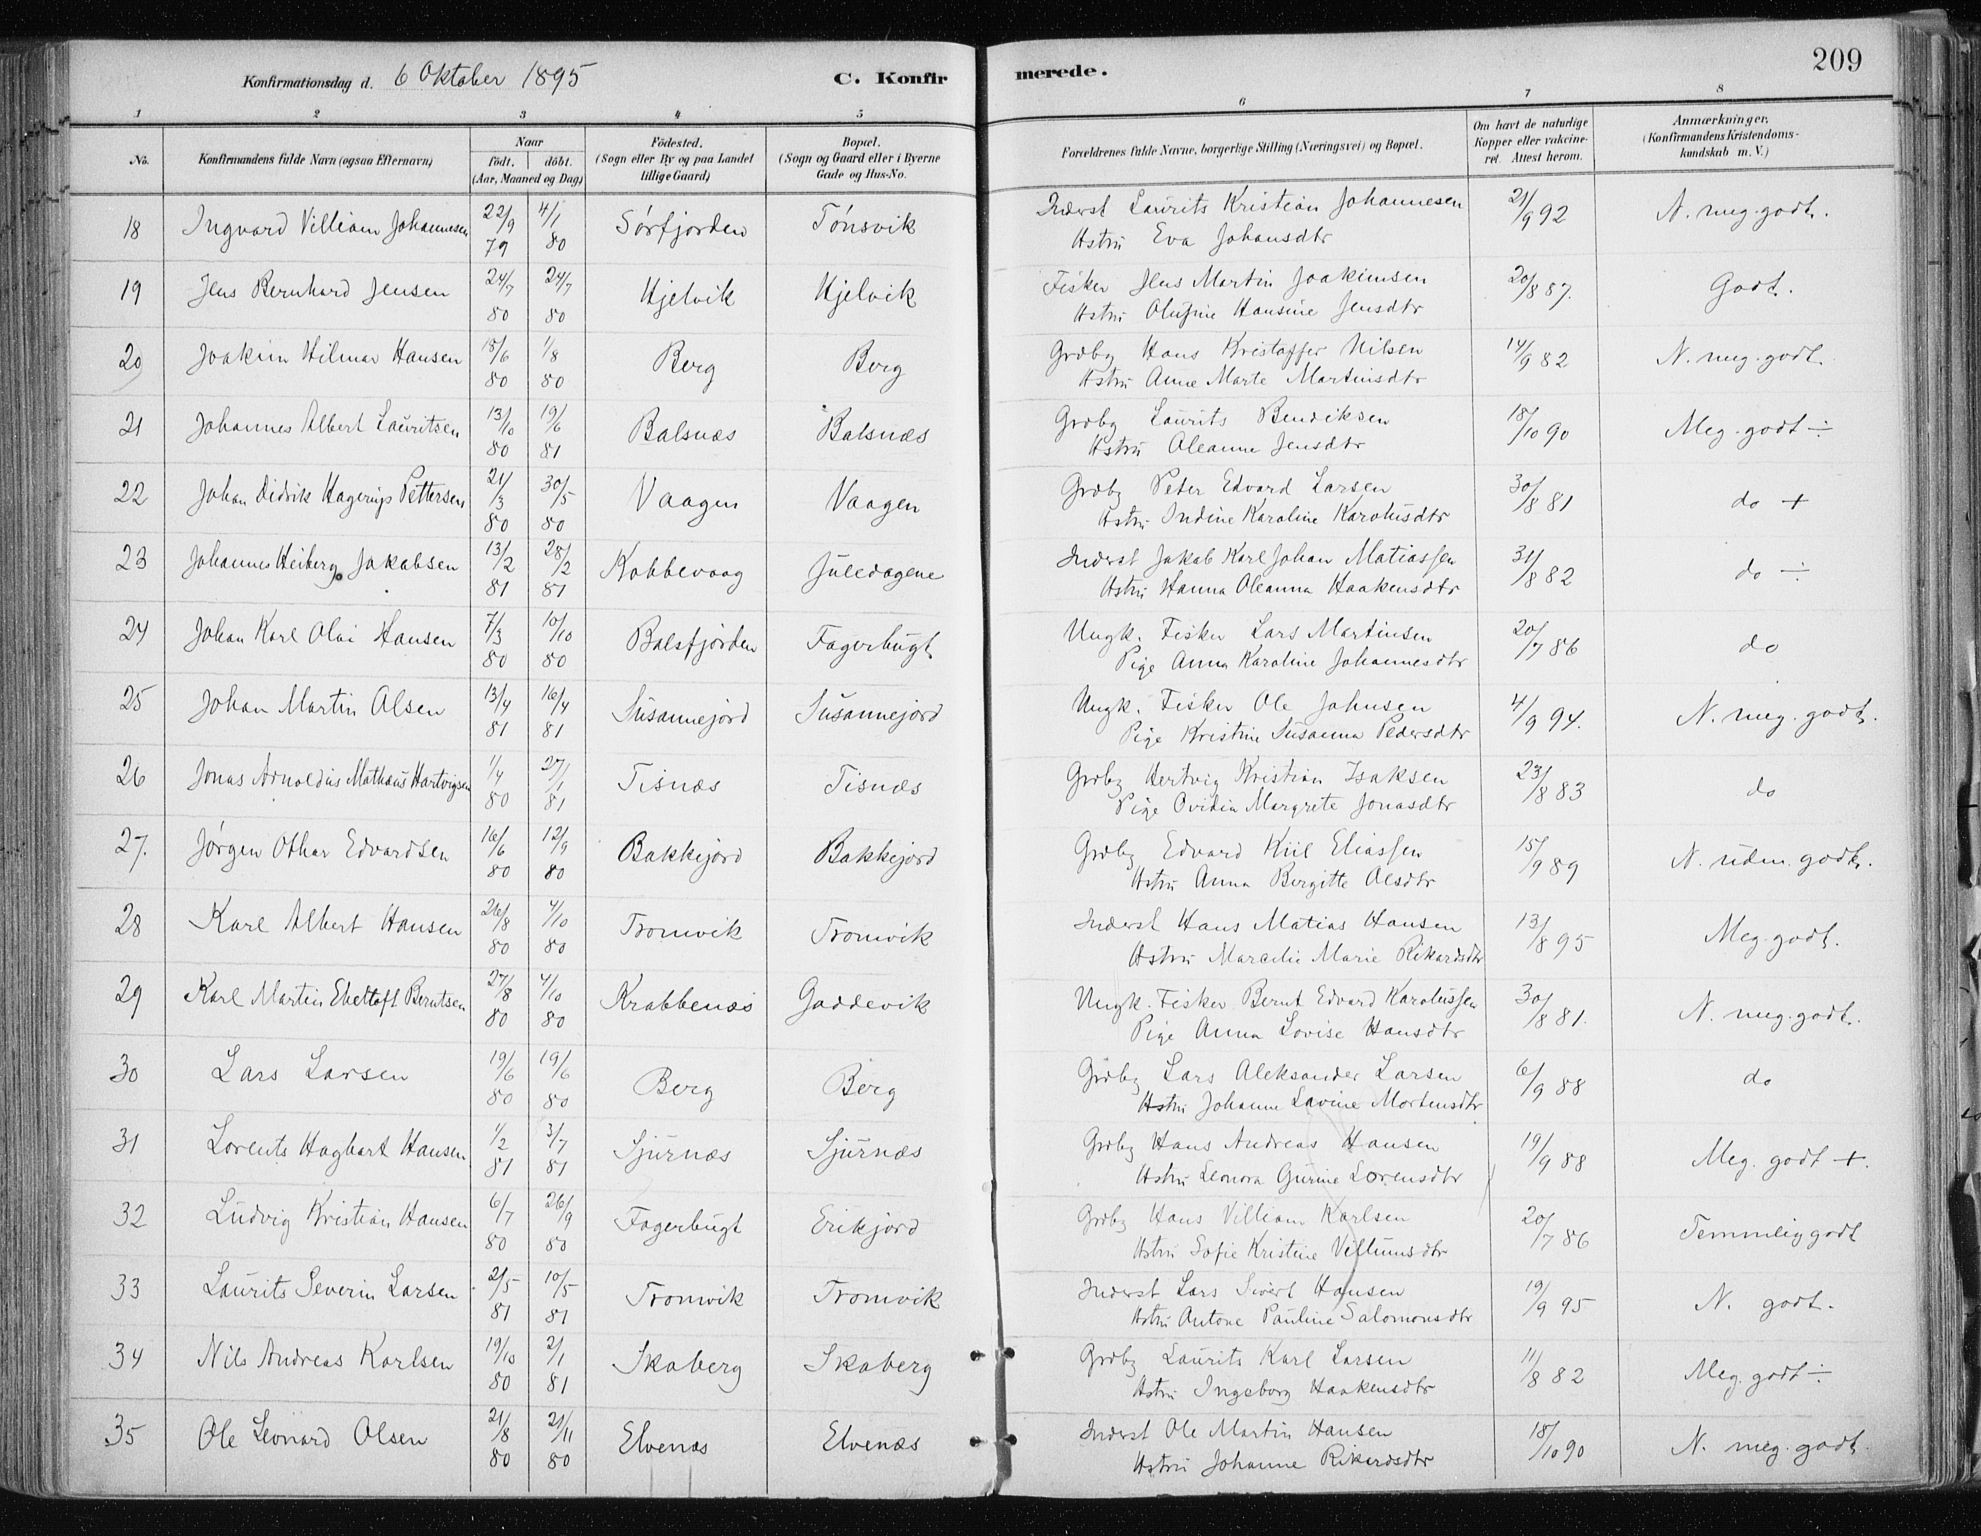 209
Konfirmationsdag d. 6 Oktober 1895 C. Konfirmerede.
1 2 3 4 5 6 7 8
No. Konfirmandens fulde Navn (ogsaa Efternavn) Naar født, døbt. (Aar, Maaned og Dag) Fødested. (Sogn eller By og paa Landet tillige Gaard) Bopæl. (Sogn og Gaard eller i Byerne Gade og Hus-No. Forældrenes fulde Navne, borgerlige Stilling (Næringsvei) og Bopæl. Om havt de naturlige Kopper eller vakcineret. Attest herom. Anmærkninger. (Konfirmandens Kristendomskundskab m. V.)
18 Ingvard Villiam Johannesen 22/9 79 4/1 80 Sørfjorden Tønsvik Inderst Laurits Kristian Johannesen 21/9 92 N. meg. godt.
Hstru Eva Johansdtr
19 Jens Bernhard Jensen 24/7 80 24/7 80 Hjelvik Hjelvik Fisker Jens Martin Joakimsen 20/8 87. Godt.
Hstru Olufine Hansine Jensdtr
20 Joakim Hilmar Hansen 18/6 80 1/8 80 Berg Berg Grdbg Hans Kristoffer Nilsen 14/9 82 N. meg. godt.
Hstru Anne Marte Martinsdtr
21 Johannes Albert Lauritsen 13/10 80 19/6 81 Balsnæs Balsnæs Grdbg Laurits Bendiksen 18/10 90 Meg. godt ÷
Hstru Oleanna Jensdtr
22 Johan Didrik Hagerup Pettersen 21/3 80 30/5 80 Vaagen Vaagen Grdbg Peter Edvard Larsen 30/8 81 do +
Hstru Indine Karoline Karolusdtr
23 Johannes Heiberg Jakabsen 13/2 81 28/2 81 Kobbevaag Juledagene Inderst Jakob Karl Johan Matiassen 31/8 82 do ÷
Hstru Hanna Oleanna Haakensdtr
24 Johan Karl Olai Hansen 7/3 80 10/10 80 Balsfjorden Fagerbugt Ungk. Fisker Lars Martinsen 20/7 86 do
Pige Anna Karoline Johannesdtr
25 Johan Martin Olsen 13/4 81 16/4 81 Susannejord Susannejord Ungk. Fisker Ole Johnsen 4/9 94. N. meg. godt.
Pige Kristine Susanna Pedersdtr
26 Jonas Arnoldus Mathæus Hartvigsen 1/4 80 27/1 81 Tisnæs Tisnæs Grdbg Hertvig Kristian Isaksen 23/8 83 do
Pige Ovidia Margrete Jonasdtr
27. Jørgen Othar Edvardsen 16/6 80 12/9 80 Bakkejord Bakkejord Grdbg Edvard Kiil Eliassen 15/9 89 N. udm. godt.
Hstru Anna Bergitte Olsdtr
28 Karl Albert Hansen 26/8 80 4/10 80 Tromvik Tromvik Inderst Hans Matias Hansen 13/8 95 Meg. godt.
Hstru Marcelie Marie Rikardsdtr
29 Karl Martin Ebeltoft Berntsen 27/8 80 4/10 80 Krabbenæs Gaddevik Ungk. Fisker Bernt Edvard Karolussen 30/8 81. N. meg. godt.
Pige Anna Lovise Hansdtr
30 Lars Larsen 19/6 80 19/6 80 Berg Berg Grdbg Lars Aleksander Larsen 6/9 88 do
Hstru Johanne Lavine Mortensdtr
31 Lorents Hagbart Hansen 1/2 81 3/7 81 Sjurnæs Sjurnæs Grdbg Hans Andreas Hansen 19/9 88 Meg. godt +.
Hstru Leonora Gurine Lorensdtr
32 Ludvig Kristian Hansen 6/7 80 26/9 80 Fagerbugt Erikjord Grdbg Hans Villiam Karlsen 20/7 86 Temmelig godt
Hstru Sofie Kristine Villumsdtr
33 Laurits Severin Larsen 2/5 81 10/5 81 Tromvik Tromvik Inderst Lars Sivert Hansen 19/9 95 N. godt.
Hstru Antone Pauline Salomonsdtr
34 Nils Andreas Karlsen 19/10 80 2/1 81 Skaberg Skaberg Grdbg Laurits Karl Larsen 11/8 82 Meg. godt ÷
Hstru Ingeborg Haakensdtr
35 Ole Leonard Olsen 21/8 80 21/11 80 Elvenæs Elvenæs Inderst Ole Martin Hansen 18/10 90 N. meg. godt.
Hstru Johanne Rikardsdtr